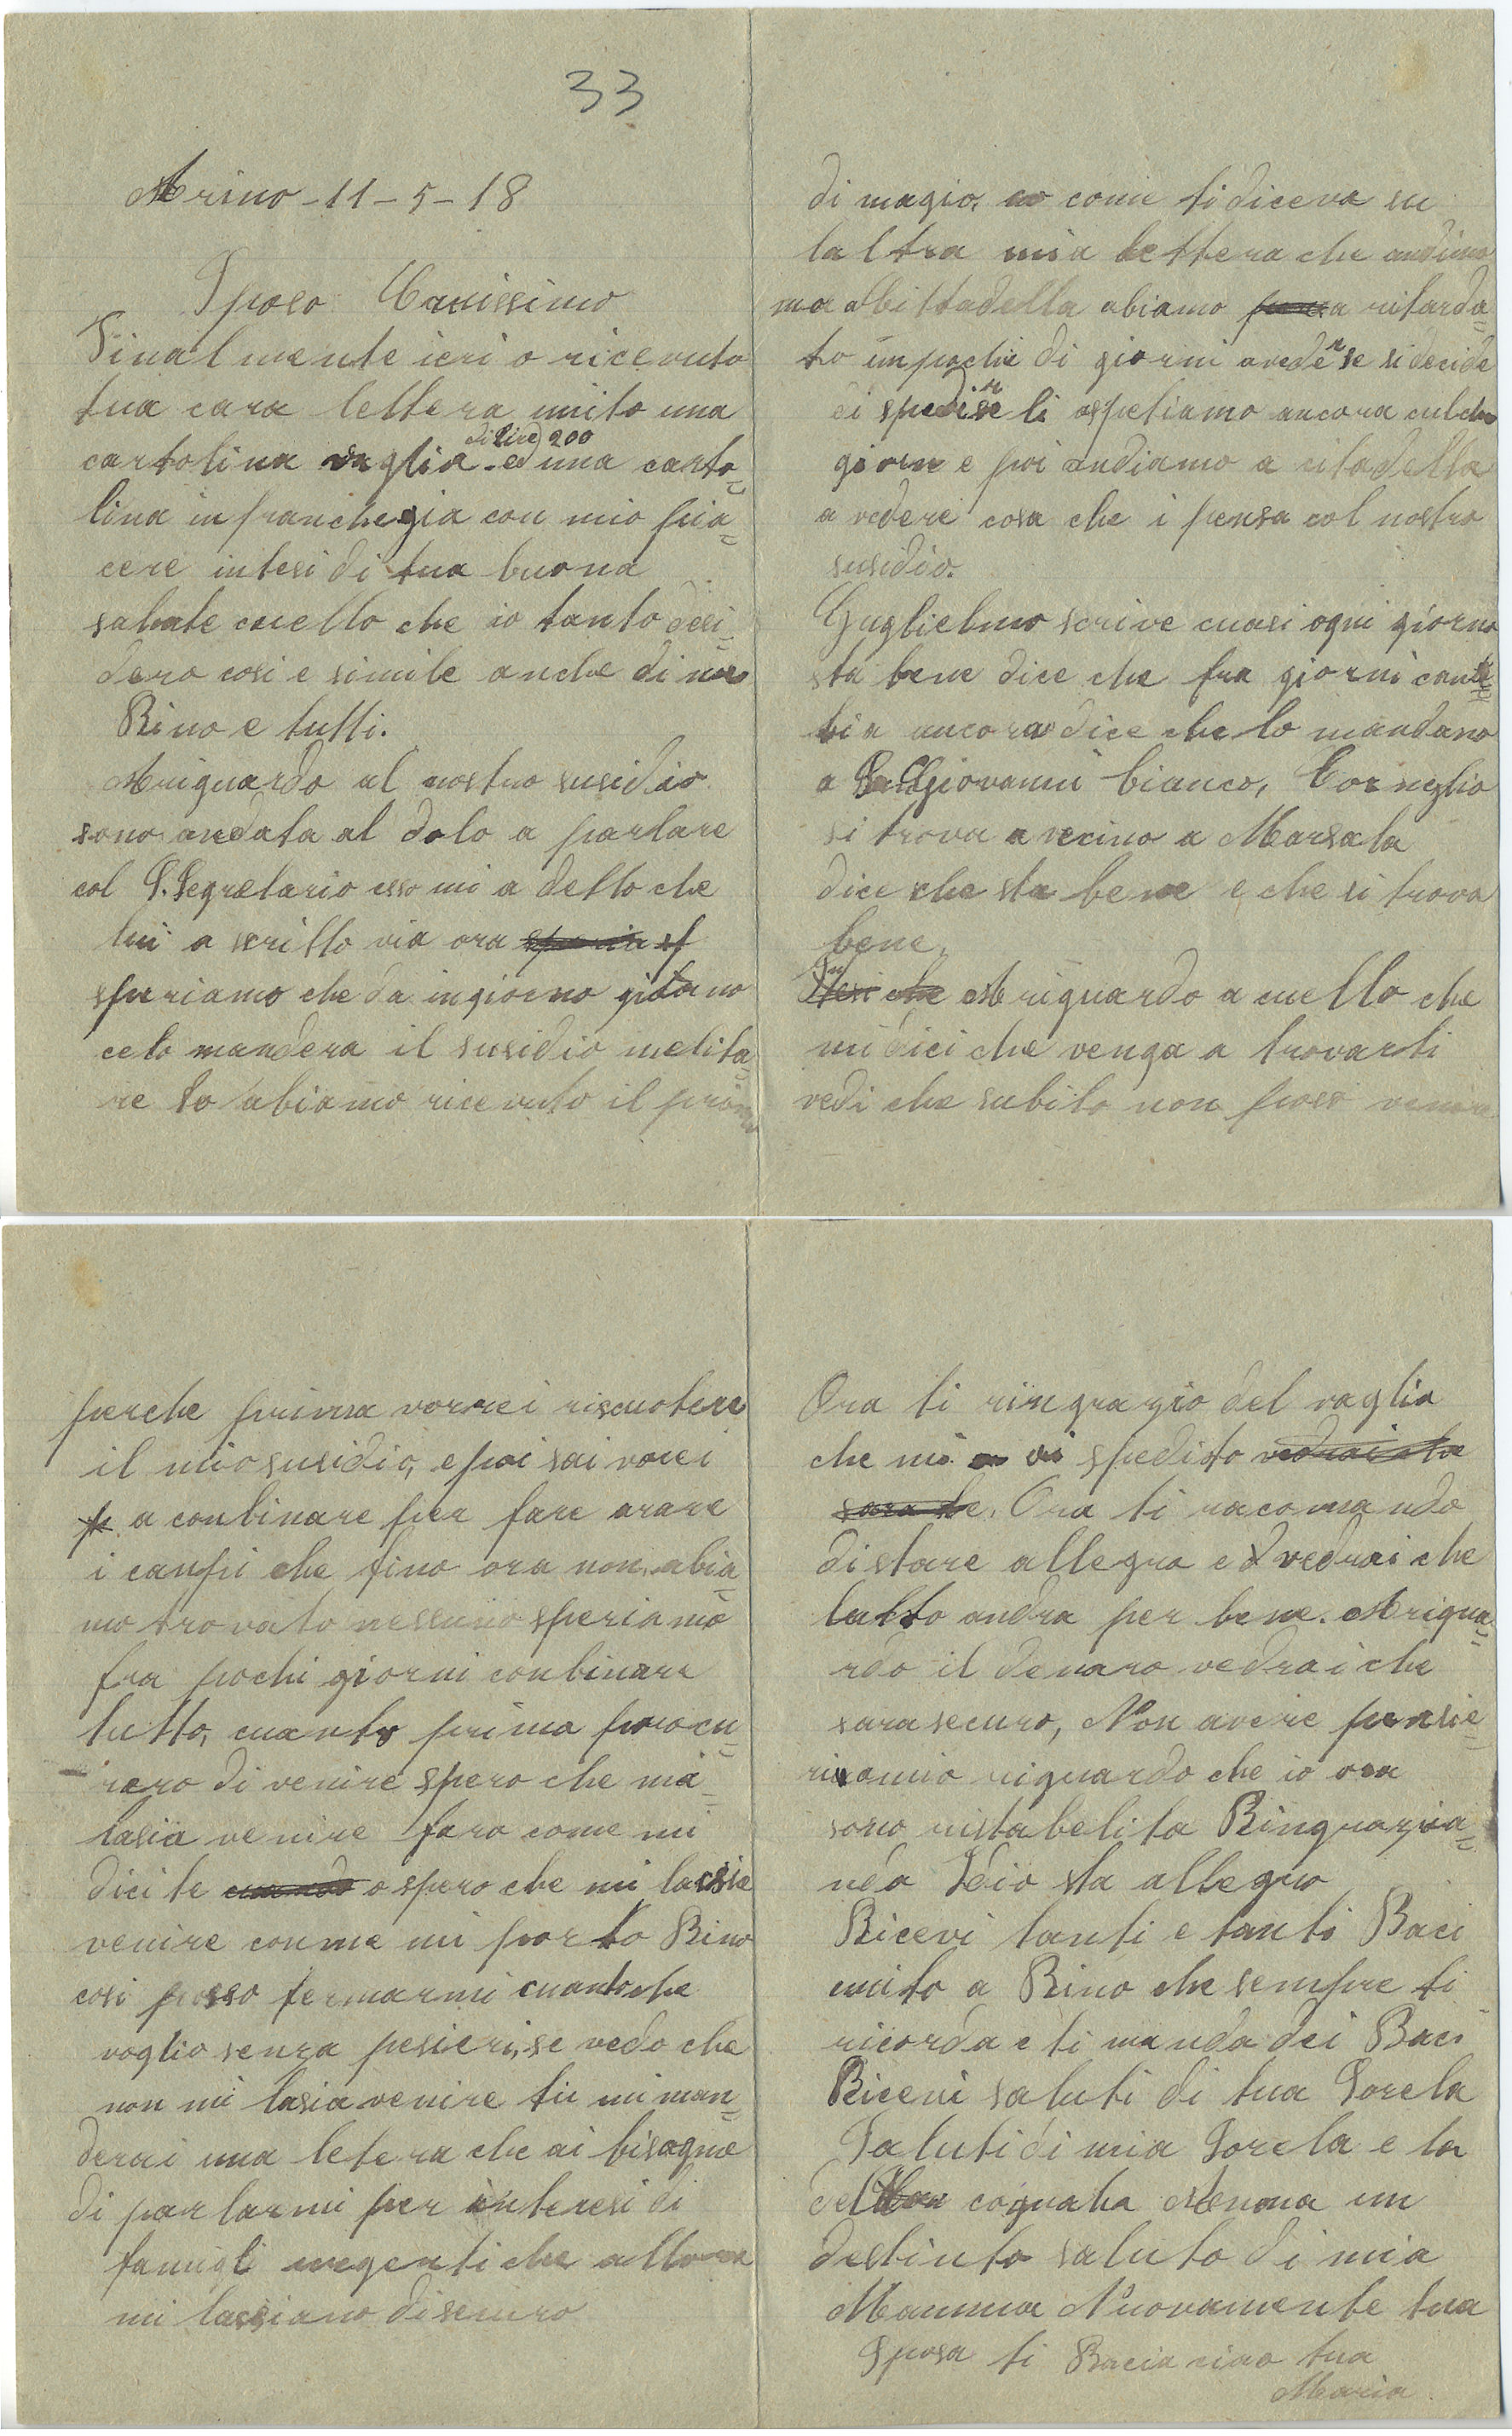 33
Arino - 11 - 5 - 18
Sposo Carissimo
Finalmente ieri o ricevuto
tua cara lettera unito una
cartolina vaglia di lire 200 ed una carto=
lina in franchegia con mio pia=
cere intesi di tua buona
salute cuello che io tanto desi=
dero cosi e simile anche di me
Rino e tutti.
Ariguardo al nostro susidio
sono andata al dolo a parlare
col S. Segretario esso mi a detto che
lui a scritto via ora
speriamo che da in giorno giorno
celo mandera il susidio melita=
re lo abiamo ricevuto il primo
di magio, come ti diceva su
laltra mia lettera che
ma abittadella abiamo ritarda=
to un pochi di giorni a veder se si decide
di spedirseli aspetiamo ancora culche
giorn e poi andiamo a citadella
a vedere cosa che i pensa col nostro
susidio.
Guglielmo scrive cuasi ogni giorno
sta bene dice che fra giorni can=
bia ancora dice che lo mandano
a San giovanni bianco, Corneglio
si trova a vecino a Marsala
dice che sta bene e che si trova
bene.
In Ariguardo a cuello che
mi dici che venga a trovarti
vedi che subito non poso venire
perche prima vorrei riscuotere
il mio susidio, e poi sai vorei
a conbinare per fare arare
i canpi che fino ora non abia=
mo trovato nessuno speriamo
fra pochi giorni conbinare
tutto, cuanto prima procu=
rero di venire spero che mi
lasia venire faro come mi
dici te o spero che mi lassie
venire conme mi porto Rino
cosi posso fermarmi cuantoche
voglio senza pesieri, se vedo che
non mi lasia venire tu mi man=
derai una letera che ai bisogno
di parlarmi per interesi di
famigli urgenti che allora
mi lassiano di securo
Ora ti ringrazio del vaglia
che mi ai spedito
Ora ti racomando
di stare allegro e d vedrai che
tutto andra per bene. Arigua=
rdo il denaro vedrai che
sara securo, Non avere pensie=
ri amio riguardo che io ora
sono ristabelita Ringrazia=
ndo Idio sta allegro
Ricevi tanti e tanti Baci
unito a Rino che sempre ti
ricorda e ti manda dei Baci
Ricevi saluti di tua Sorela
Saluti di mia Sorela e la
del cognata Nenona un
destinto saluto di mia
Mamma Nuovamente tua
Sposa ti Bacia rino tua
Maria